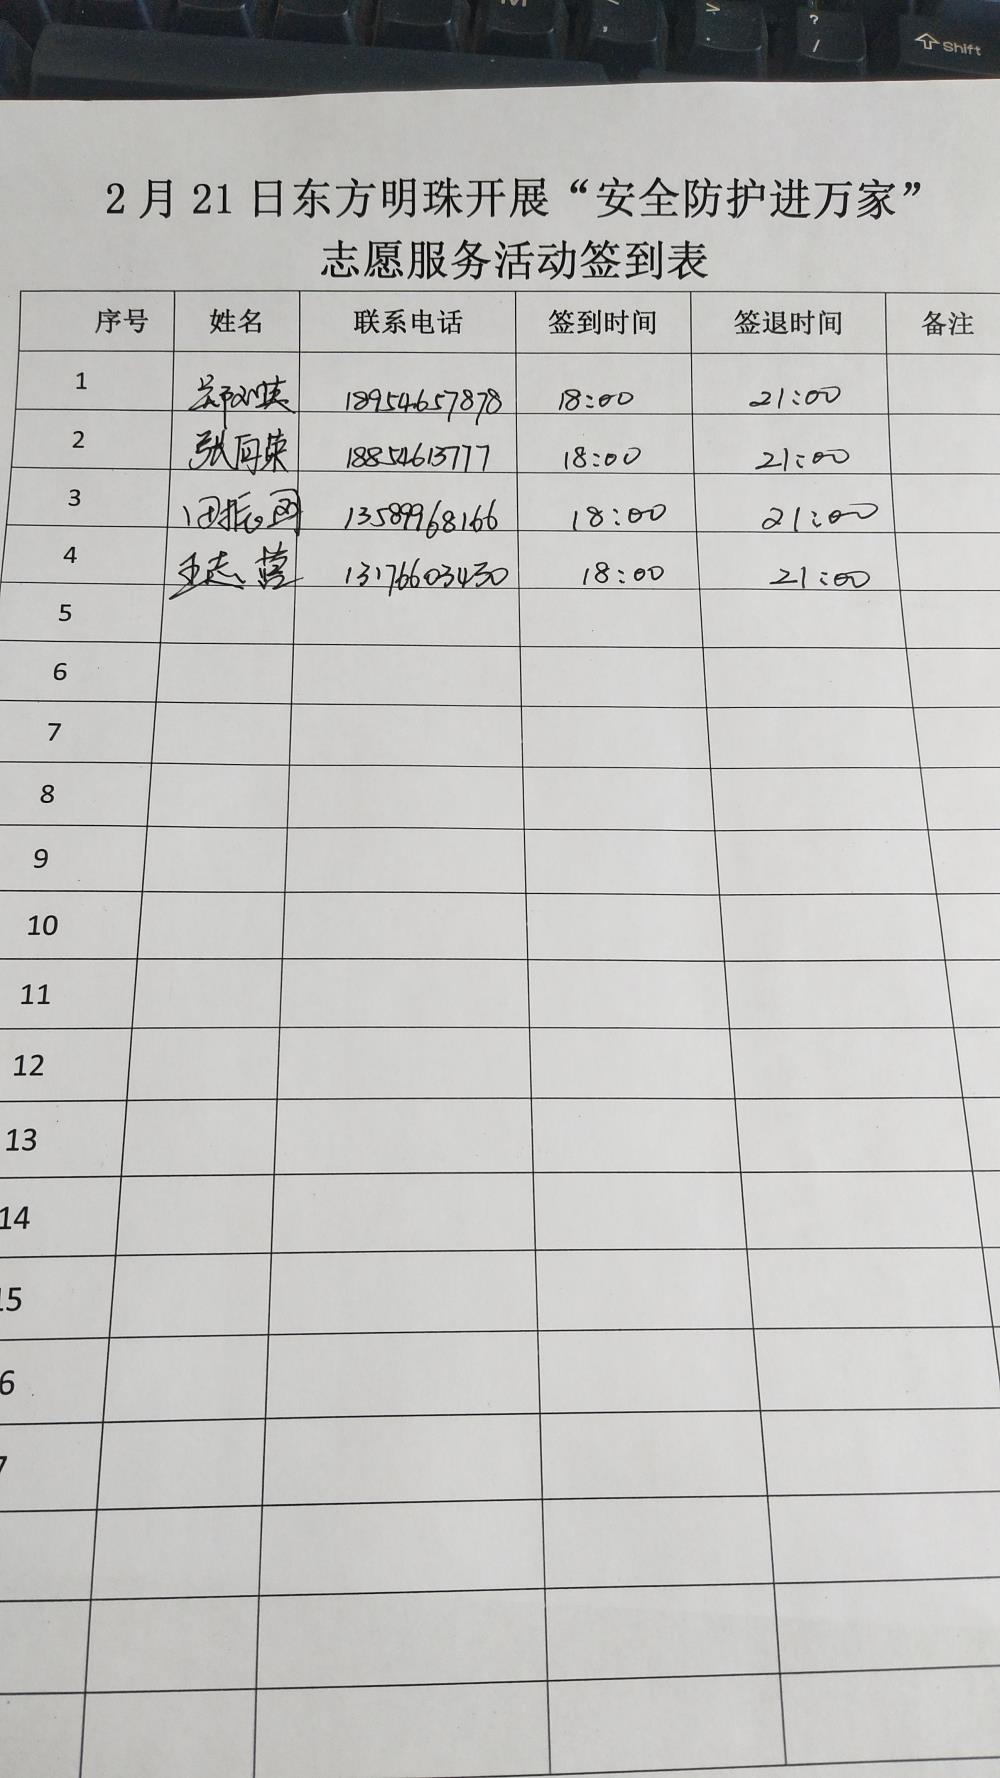 Shift
2月21日东方明珠开展“安全防护进万家”
志愿服务活动签到表
序号 姓名 联系电话 签到时间 签退时间 备注
1 18954657878 18:00 21:00
2 张同荣 18854613777 18:00 21:00
3 田振国 13589968166 18:00 21:00
4 王志营 13176603430 18:00 21:00
5
6
7
8
9
10
11
12
13
14
15
6
7